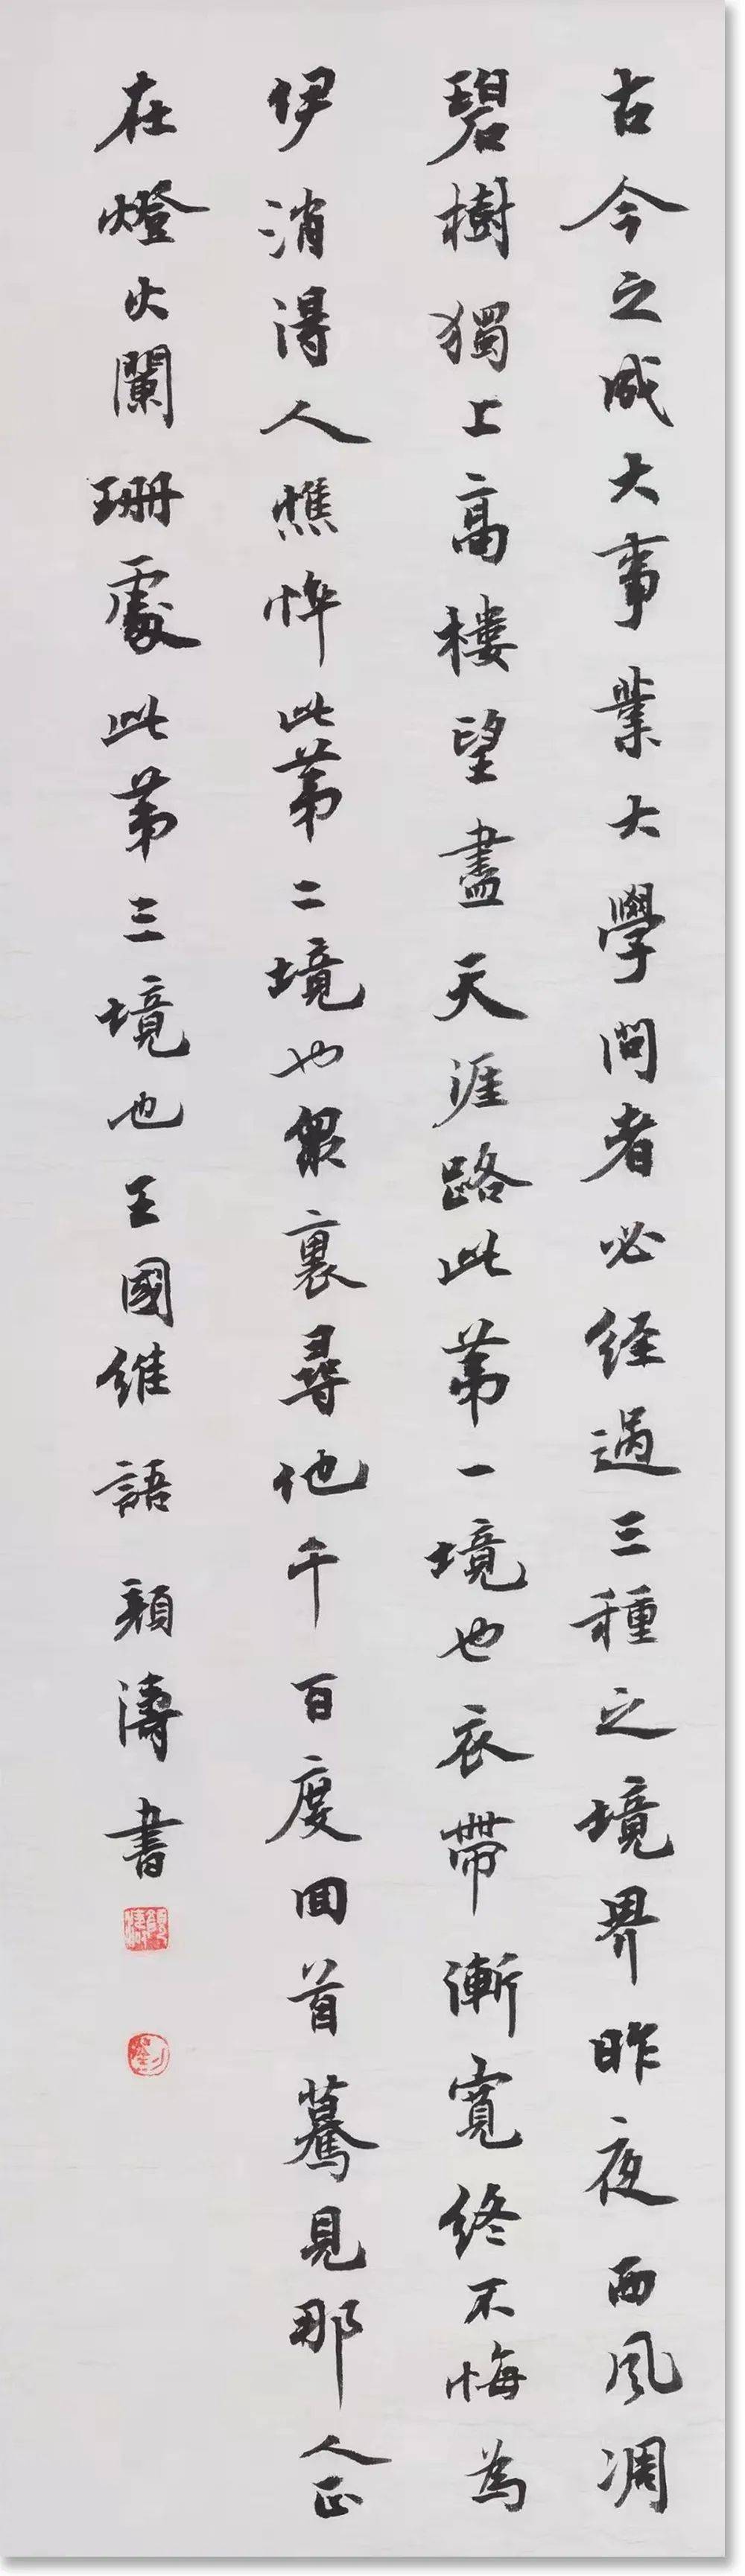 古今之成大事業大學問者必經過三種之境界昨夜西風凋
碧樹獨上高樓望盡天涯路此第一境也衣帶漸寬終不悔為
伊消得人憔悴此第二境也眾裏尋他千百度回首驀見那人正
在燈火闌珊處此第三境也王國維語 顏濤書
顏濤
劉